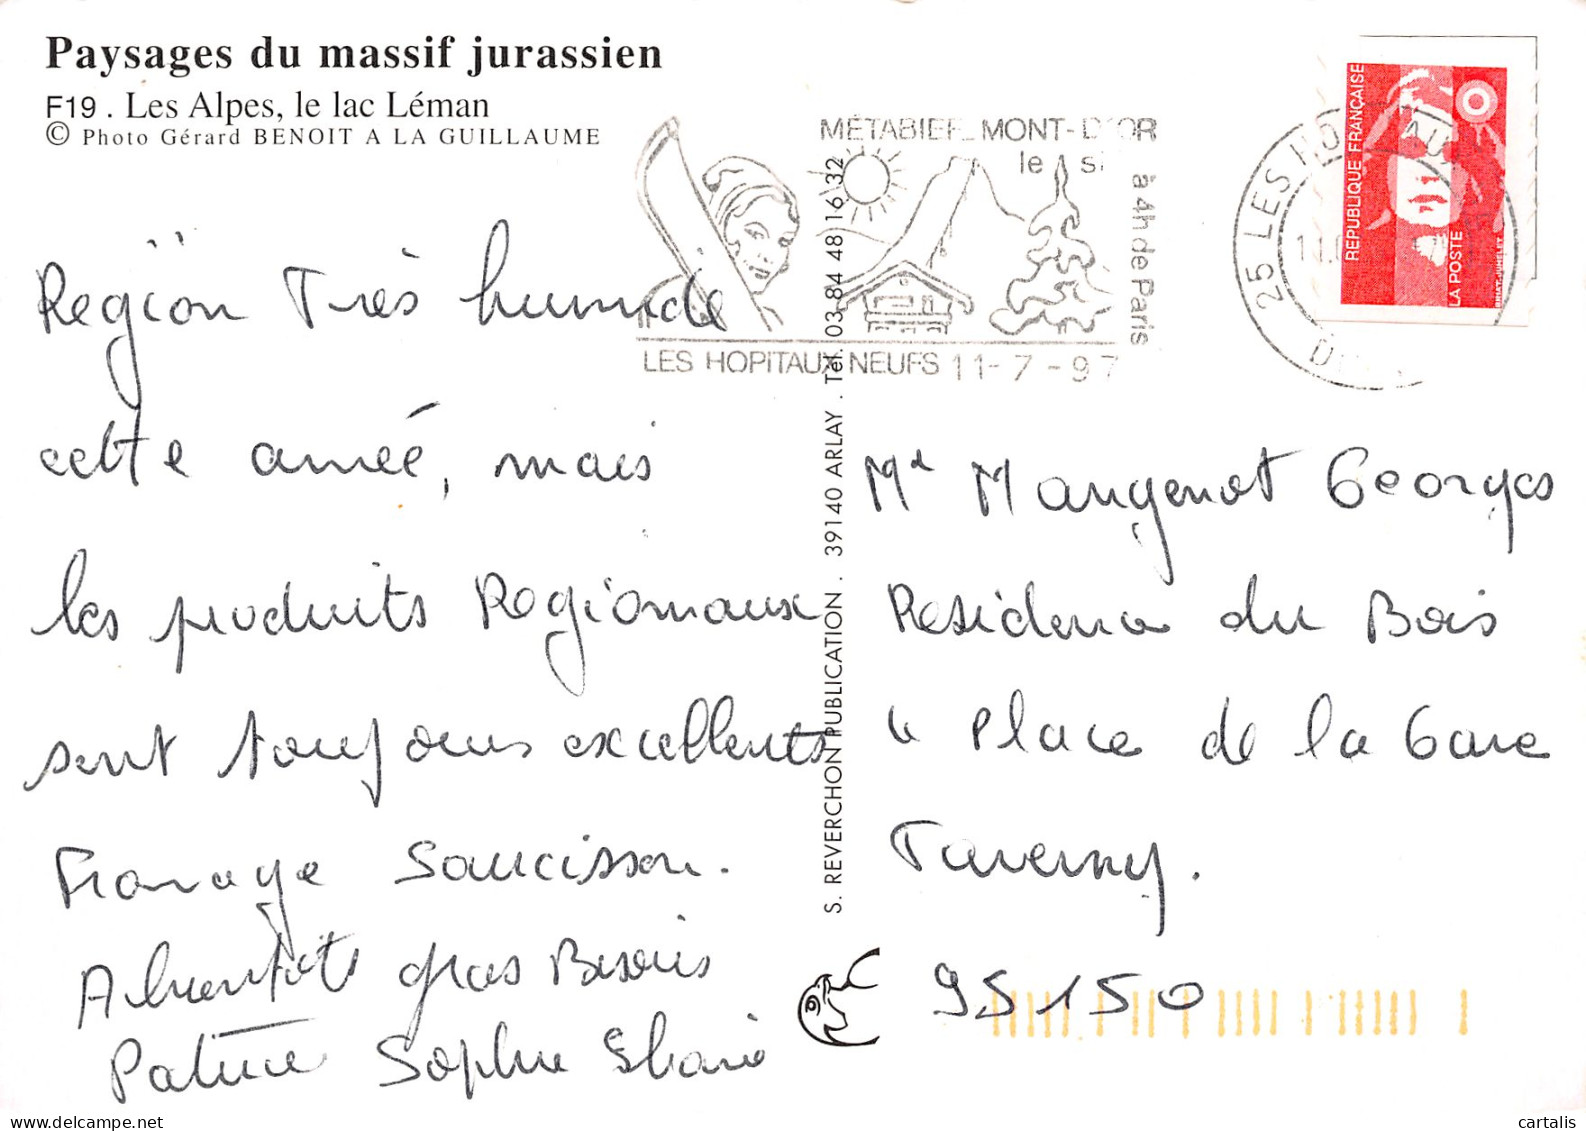 Paysages du massif jurassien
F19 . Les Alpes, le lac Léman
© Photo Gérard BENOIT A LA GUILLAUME
MÉTABIEF MONT-D'OR
le si
à 4h de Paris
LES HOPITAUX NEUFS 11-7-97
25 LES HO
REPUBLIQUE FRANÇAISE
LA POSTE
BRIAT-JUMELET
Région Très humide
cette année, mais
les produits Regionaux
sont toujours excellents
Fromage Saucisson.
A bientôt gros Bisous
Patrice Sophie
S. REVERCHON PUBLICATION . 39140 ARLAY . Tél. 03 84 48 16 32
Md M Mangenot Georges
Residence du Bois
4 Place de la Gare
Taverny.
95150
delcampe.net
cartalis